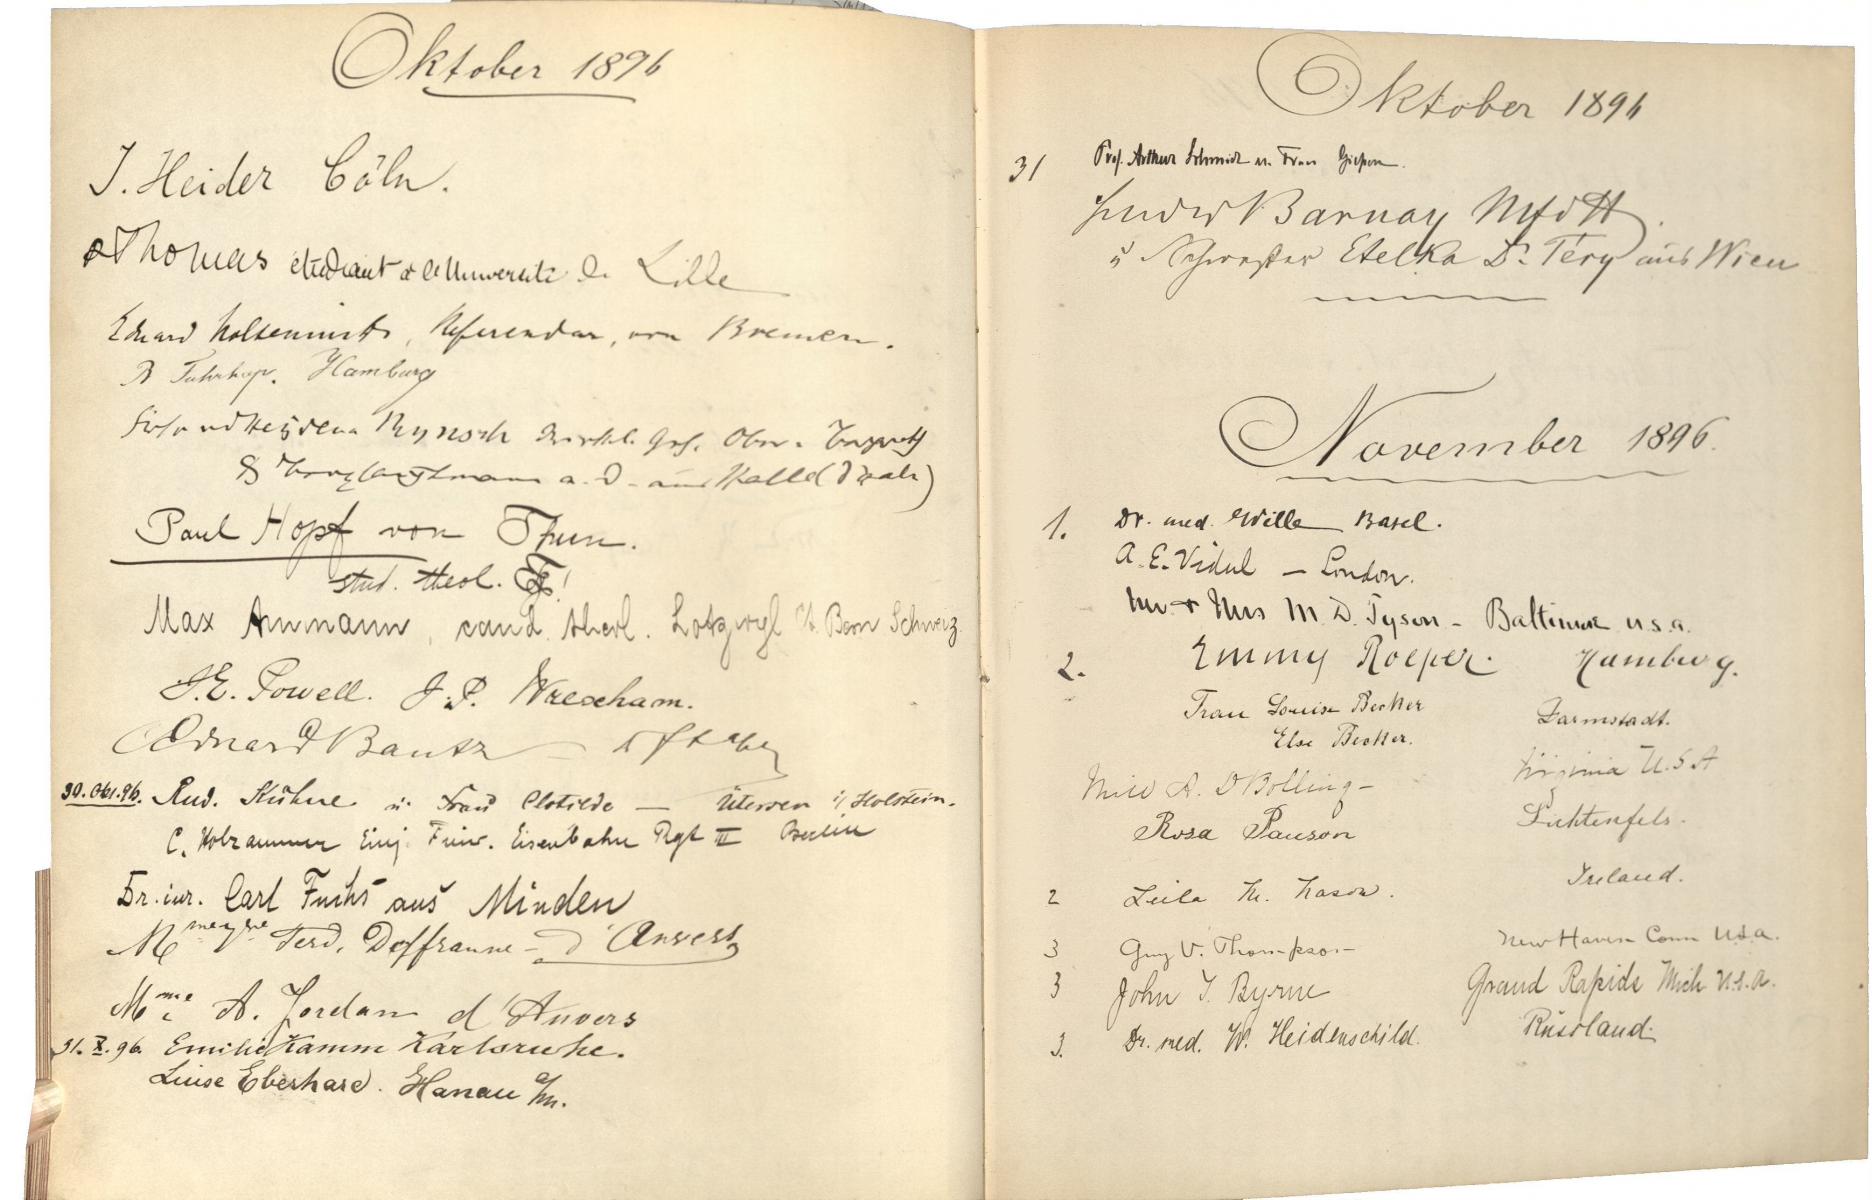 Oktober 1896
J. Heider Cöln.
Thomas étudiant à l'Université de Lille
Eduard Noltenius, Referendar, von Bremen.
Fuhrhop. Hamburg
a. D. aus Halle (Saale)
Paul Hopf von Thun.
stud. theol.
Max Ammann, cand. theol. Lotzwyl Ct. Bern Schweiz
J.E. Powell. J.P. Wrexham.
Eduard Bautz
30. Okt. 96. Rud. Kühne u. Frau Clotilde — Ütersen i/ Holstein.
C. Einj. Freiw. Eisenbahn Rgt III Berlin
Dr. iur. Carl Fuchs aus Minden
Ferd. Deffranne - d'Anvers
Mme A. Jordan d'Anvers
31. X. 96. Emilie Kamm Karlsruhe.
Luise Eberhard. Hanau a/M.
Oktober 1896
31 Prof. Arthur Schmidt u. Frau Giessen.
Ludwig Barnay
u Schwester Etelka Dr. Tery aus Wien
November 1896.
1. Dr. med. Wille Basel.
A. E. Vidal — London.
Mr + Mrs M. D. Tyson - Baltimore U.S.A.
2. Emmy Roeper. Hamburg.
Frau Louise Becker Darmstadt.
Else Becker.
Miss A. D Bolling - Virginia U.S.A
Rosa Pauson Lichtenfels.
2 Leila M. Ireland.
3 Guy V. Thompson New Haven Conn U.S.A.
3 John J. Byrne Grand Rapids Mich U.S.A.
3. Dr. med. W. Heidenschild. Russland.